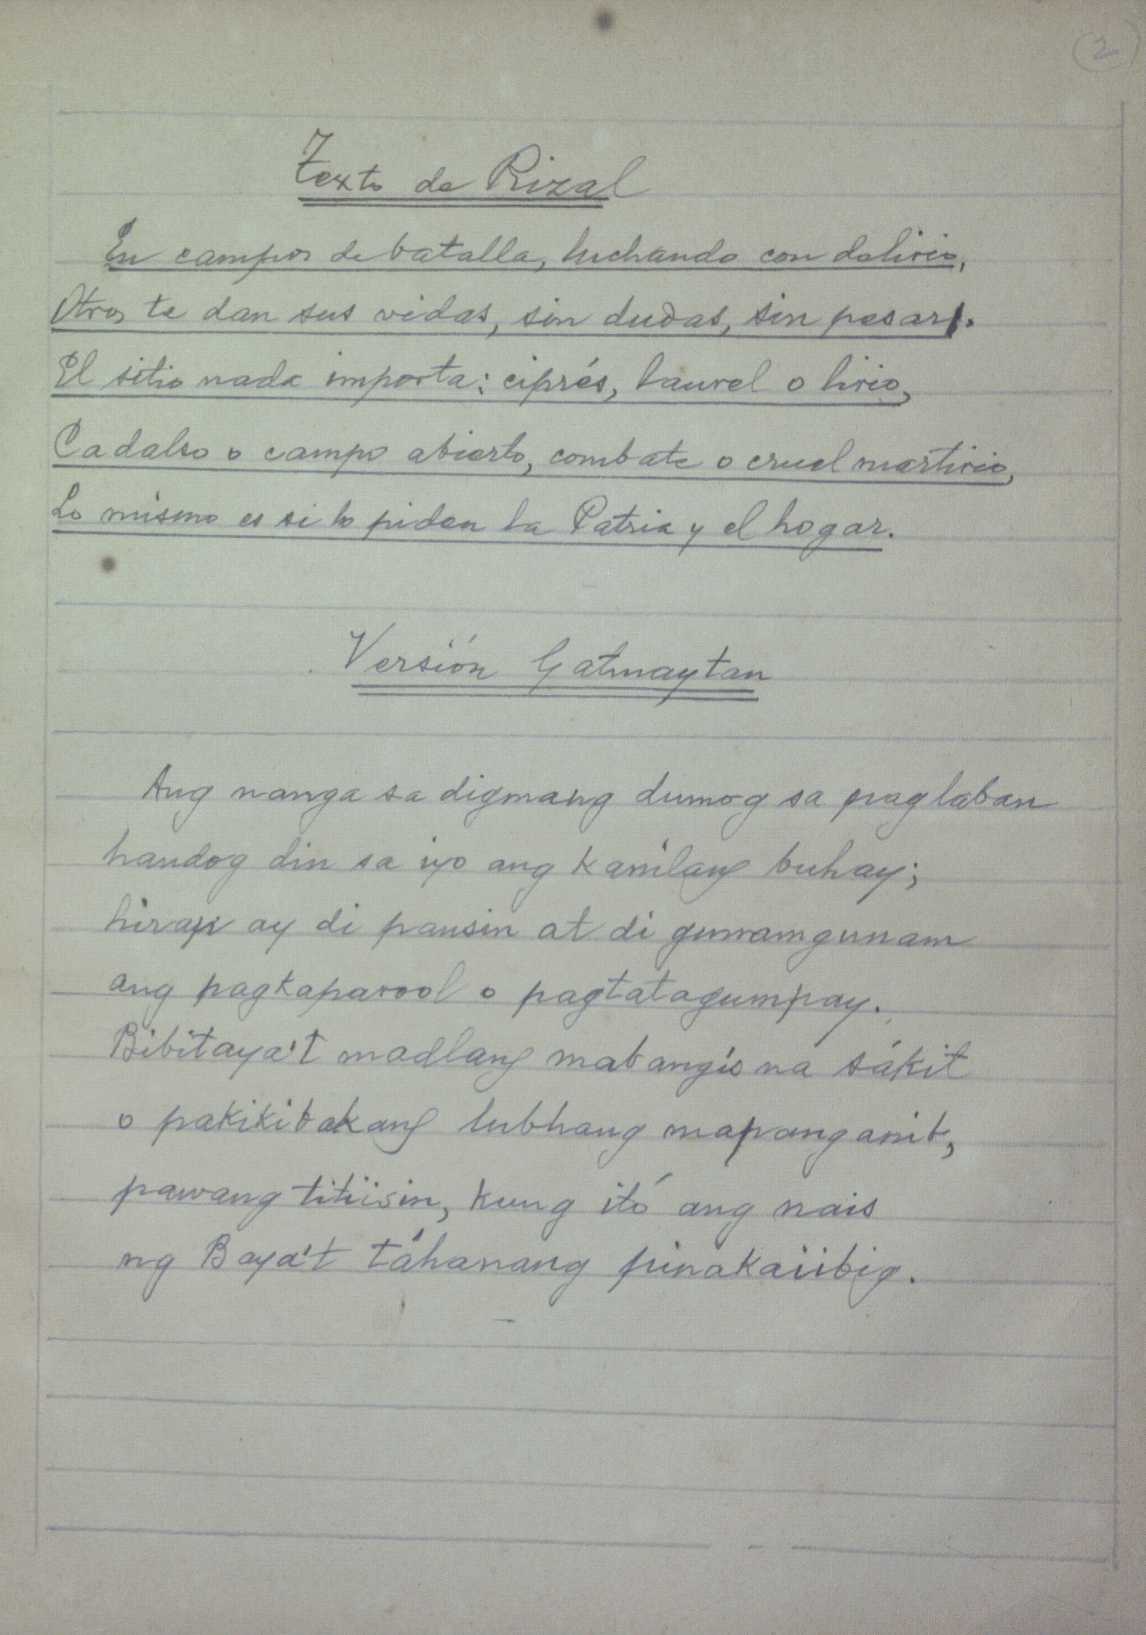 (2)
Texto de Rizal
En campos de batalla, luchando con delirio,
Otros te dan sus vidas, sin dudas, sin pesar.
El sitio nada importa: ciprés, laurel o lirio,
Cadalso o campo abierto, combate o cruel martirio,
Lo mismo es si lo piden la Patria y el hogar.
Versión Gatmaytan
Ang nanga sa digmang dumog sa paglaban
handog din sa iyo ang kanilang buhay;
hirap ay di pansin at di gunamgunam
ang pagkaparool o pagtatagumpay.
Bibitaya't madlang mabangis na sákit
o pakikibakang lubhang mapanganib,
pawang titiisin, kung itó ang nais
ng Baya't táhanang pinakaiibig.